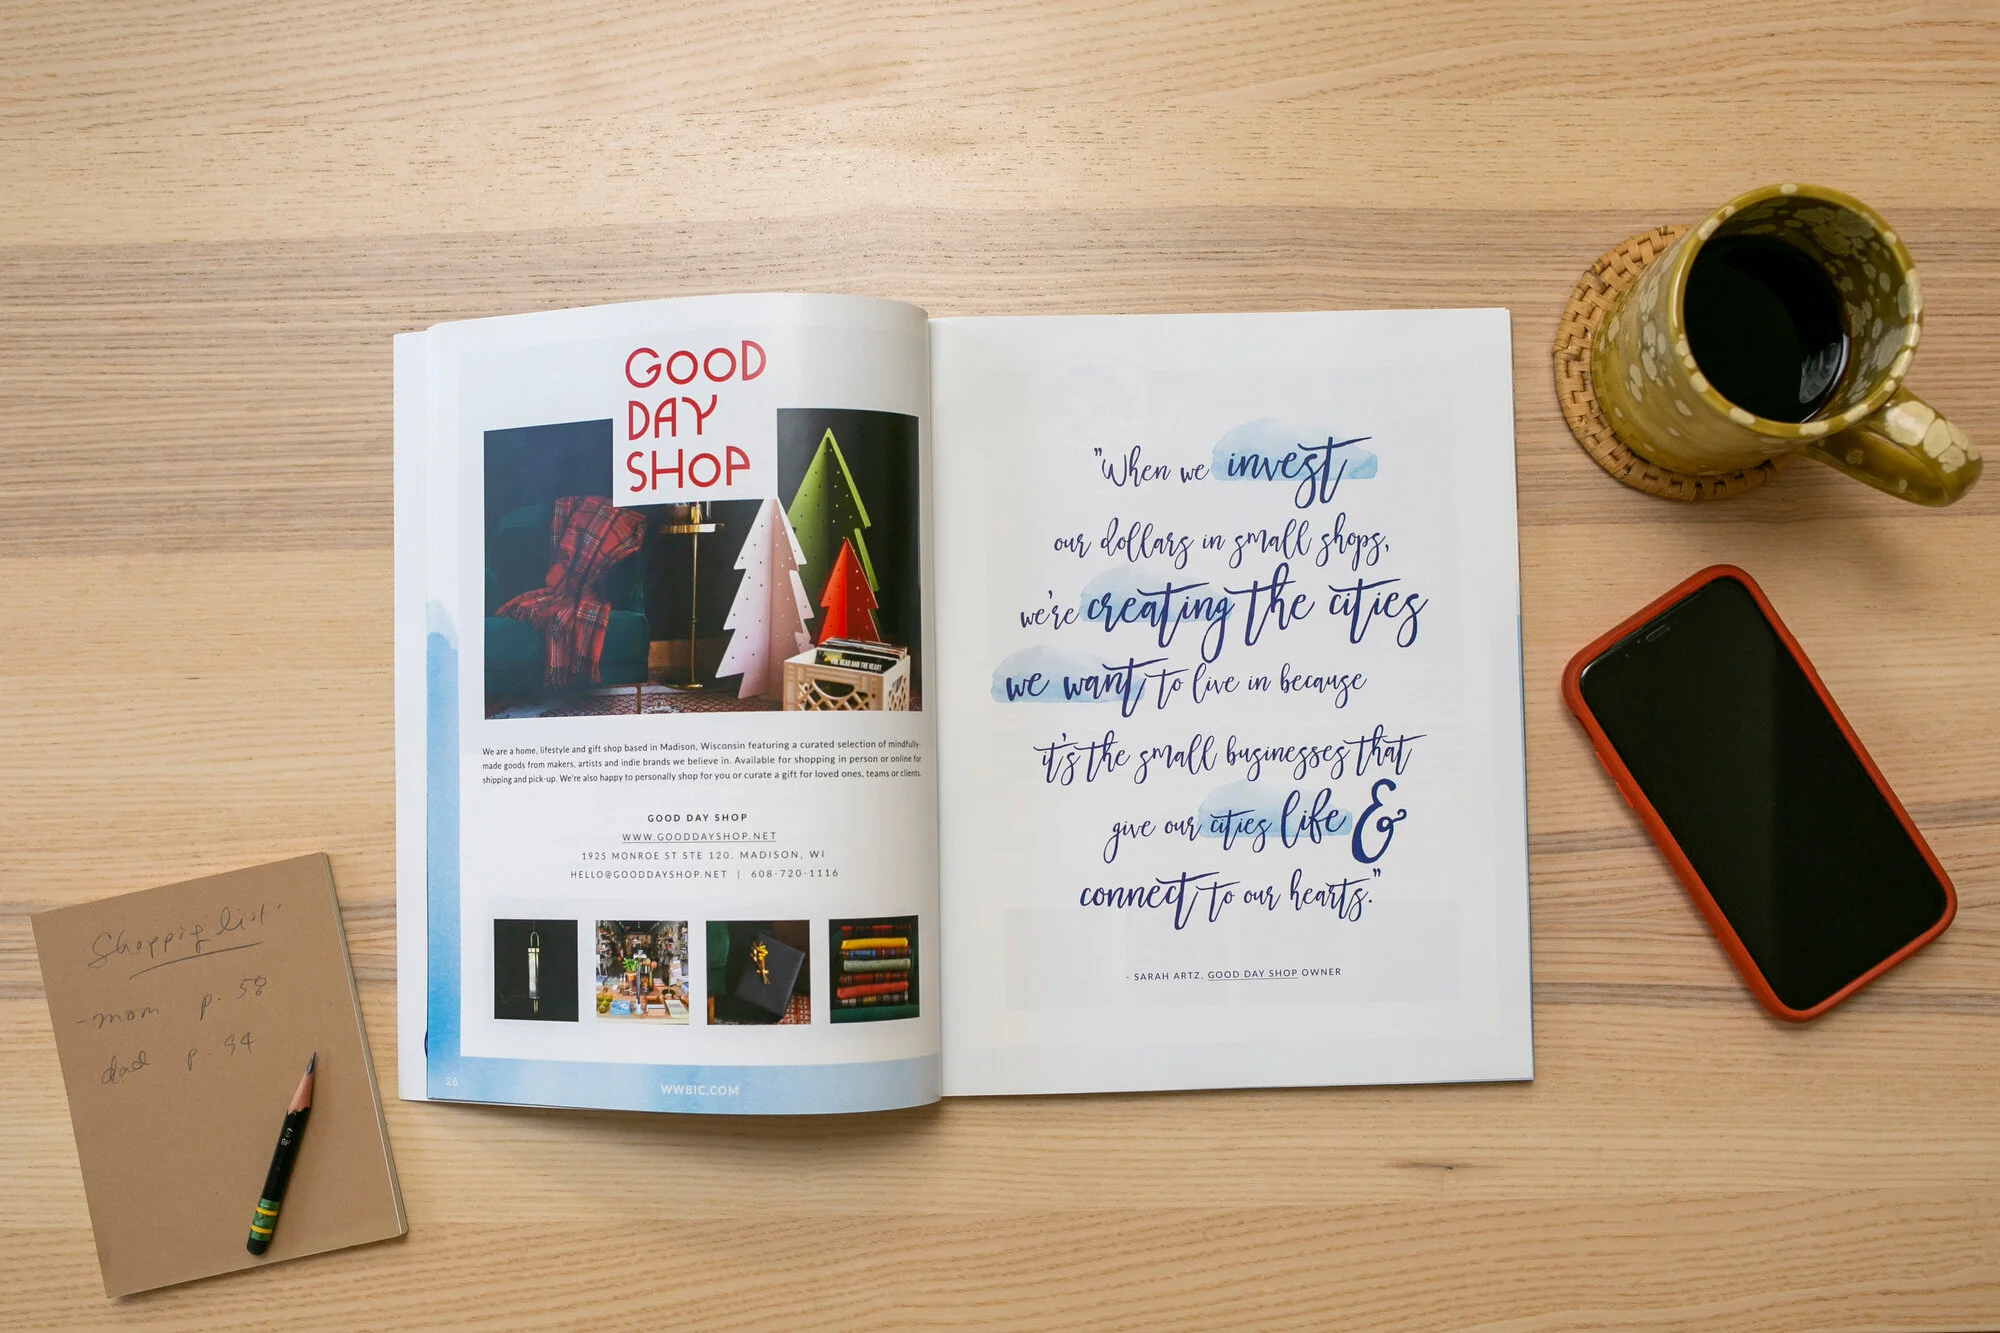 GOOD
DAY
SHOP
THE HEAD AND THE HEART
We are a home, lifestyle and gift shop based in Madison, Wisconsin featuring a curated selection of mindfully-
made goods from makers, artists and indie brands we believe in. Available for shopping in person or online for
shipping and pick-up. We're also happy to personally shop for you or curate a gift for loved ones, teams or clients.
GOOD DAY SHOP
WWW.GOODDAYSHOP.NET
1925 MONROE ST STE 120. MADISON, WI
HELLO@GOODDAYSHOP.NET | 608-720-1116
26
WWBIC.COM
"When we invest
our dollars in small shops,
we're creating the cities
we want to live in because
it's the small businesses that
give our cities life &
connect to our hearts."
- SARAH ARTZ, GOOD DAY SHOP OWNER
Shopping list:
-mom p. 58
-dad p. 94